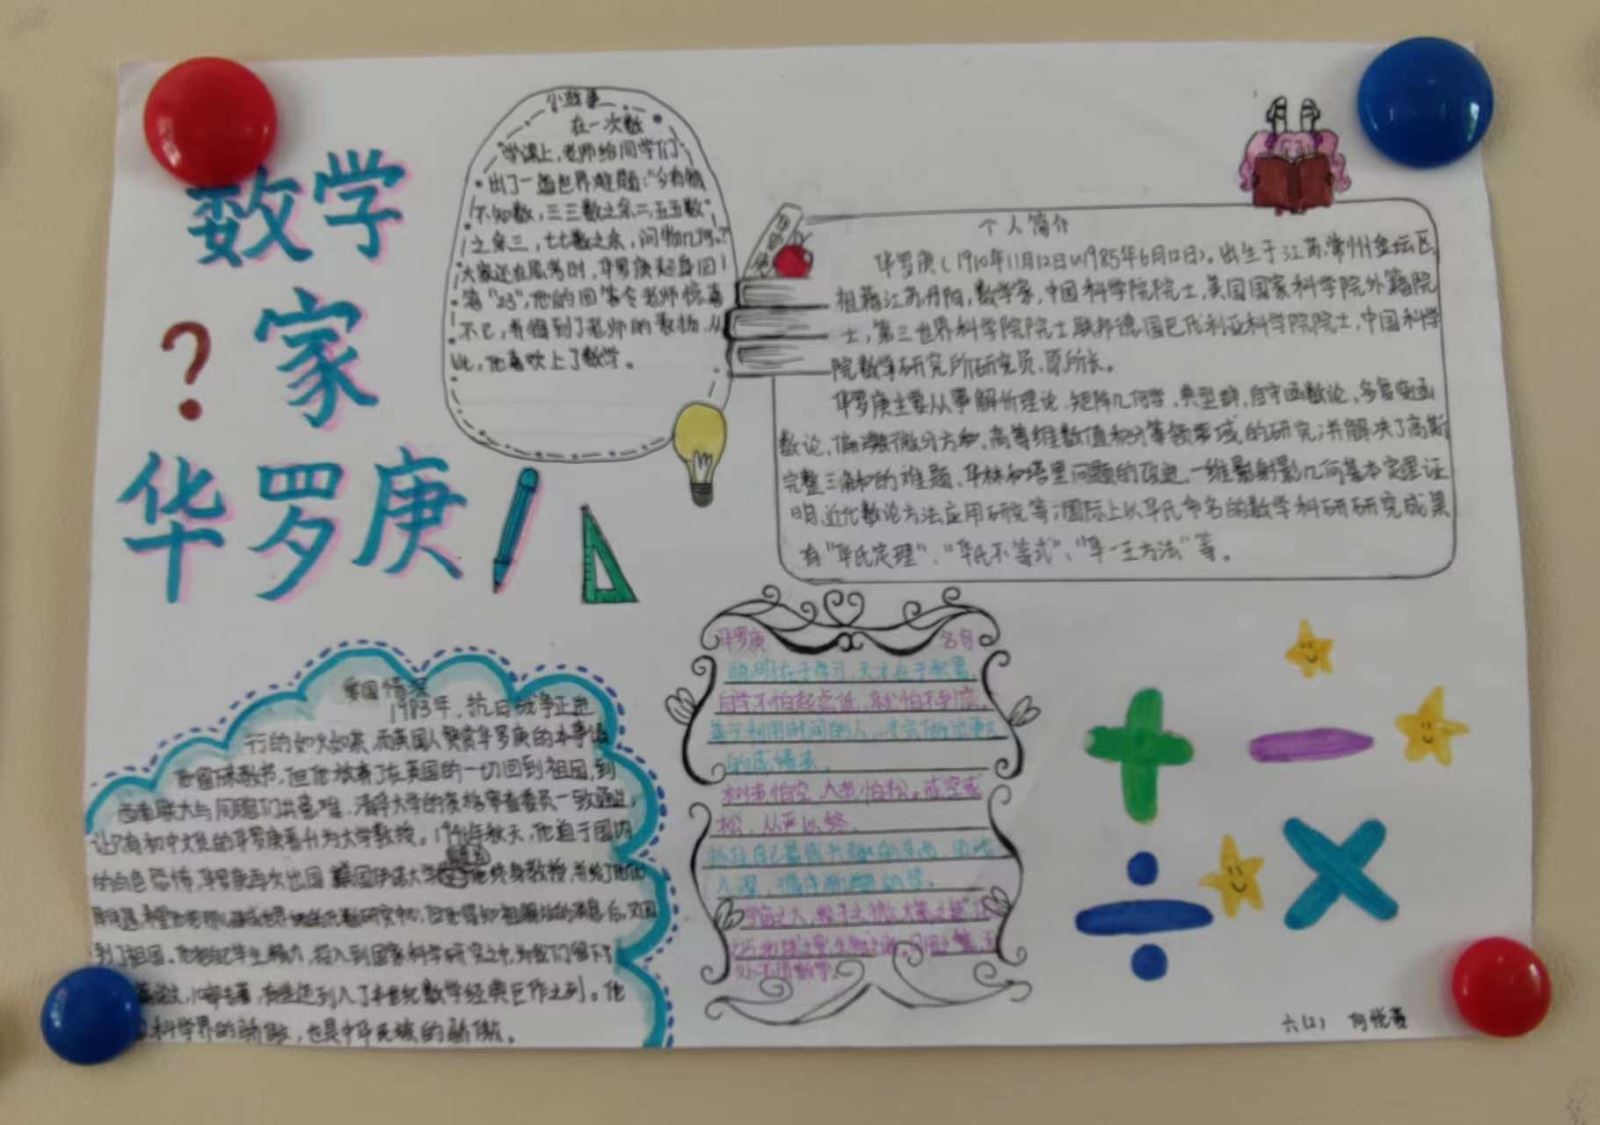 数学
家
华罗庚
小故事
在一次数
学课上,老师给同学们
出了一道世界难题:“今有物
不知数,三三数之余二,五五数
之余三,七七数之余,问物几何?”
大家还在思考时,华罗庚起身回
答“23”,他的回答令老师惊喜
不已,有得到了老师的表扬,从
此,他喜欢上了数学。
个人简介
华罗庚(1910年11月12日~1985年6月12日),出生于江苏常州金坛区,
祖籍江苏丹阳,数学家,中国科学院院士,美国国家科学院外籍院
士,第三世界科学院院士,联邦德国巴伐利亚科学院院士,中国科学
院数学研究所研究员,原所长。
华罗庚主要从事解析理论、矩阵几何学、典型群、自守函数论、多复变函
数论、偏微分方程、高等维数值积分等领域的研究;并解决了高斯
完整三角和的难题、华林和塔里问题的改进、一维射影几何基本定理证
明、近代数论方法应用研究等;国际上以华氏命名的数学科研研究成果
有“华氏定理”、“华氏不等式”、“华-王方法”等。
爱国情深
1983年,抗日战争正进
行的如火如荼,而英国人赞赏华罗庚的本事
留 教书,但他放弃了在英国的一切回到祖国,到
西南联大与同胞们共患难,清华大学的资格审查委员一致通过,
让只有初中文凭的华罗庚晋升为大学教授。1946年秋天,他迫于国内
的白色恐怖,华罗庚再次出国 终身教授,并给了他
祖国解放的消息后,又回
到了祖国。他 毕生精力,投入到国家科学研究之中,为我们留下了
论文, 专著,有些还列入了本世纪数学经典巨作之列。他
科学界的骄傲,也是中华民族的骄傲。
华罗庚 名句
聪明在于学习,天才在于积累。
自学不怕起点低,就怕不到底。
善于利用时间的人,才会 更大
的成绩来。
树老怕空,人老怕松。戒空戒
松,从严以终。
入深,循序渐进地学。
宇宙之大,粒子之微,火箭之速,化
工之巧,地球之变,生物之谜,日用之繁,无
处不用数学。
六(2) 何悦